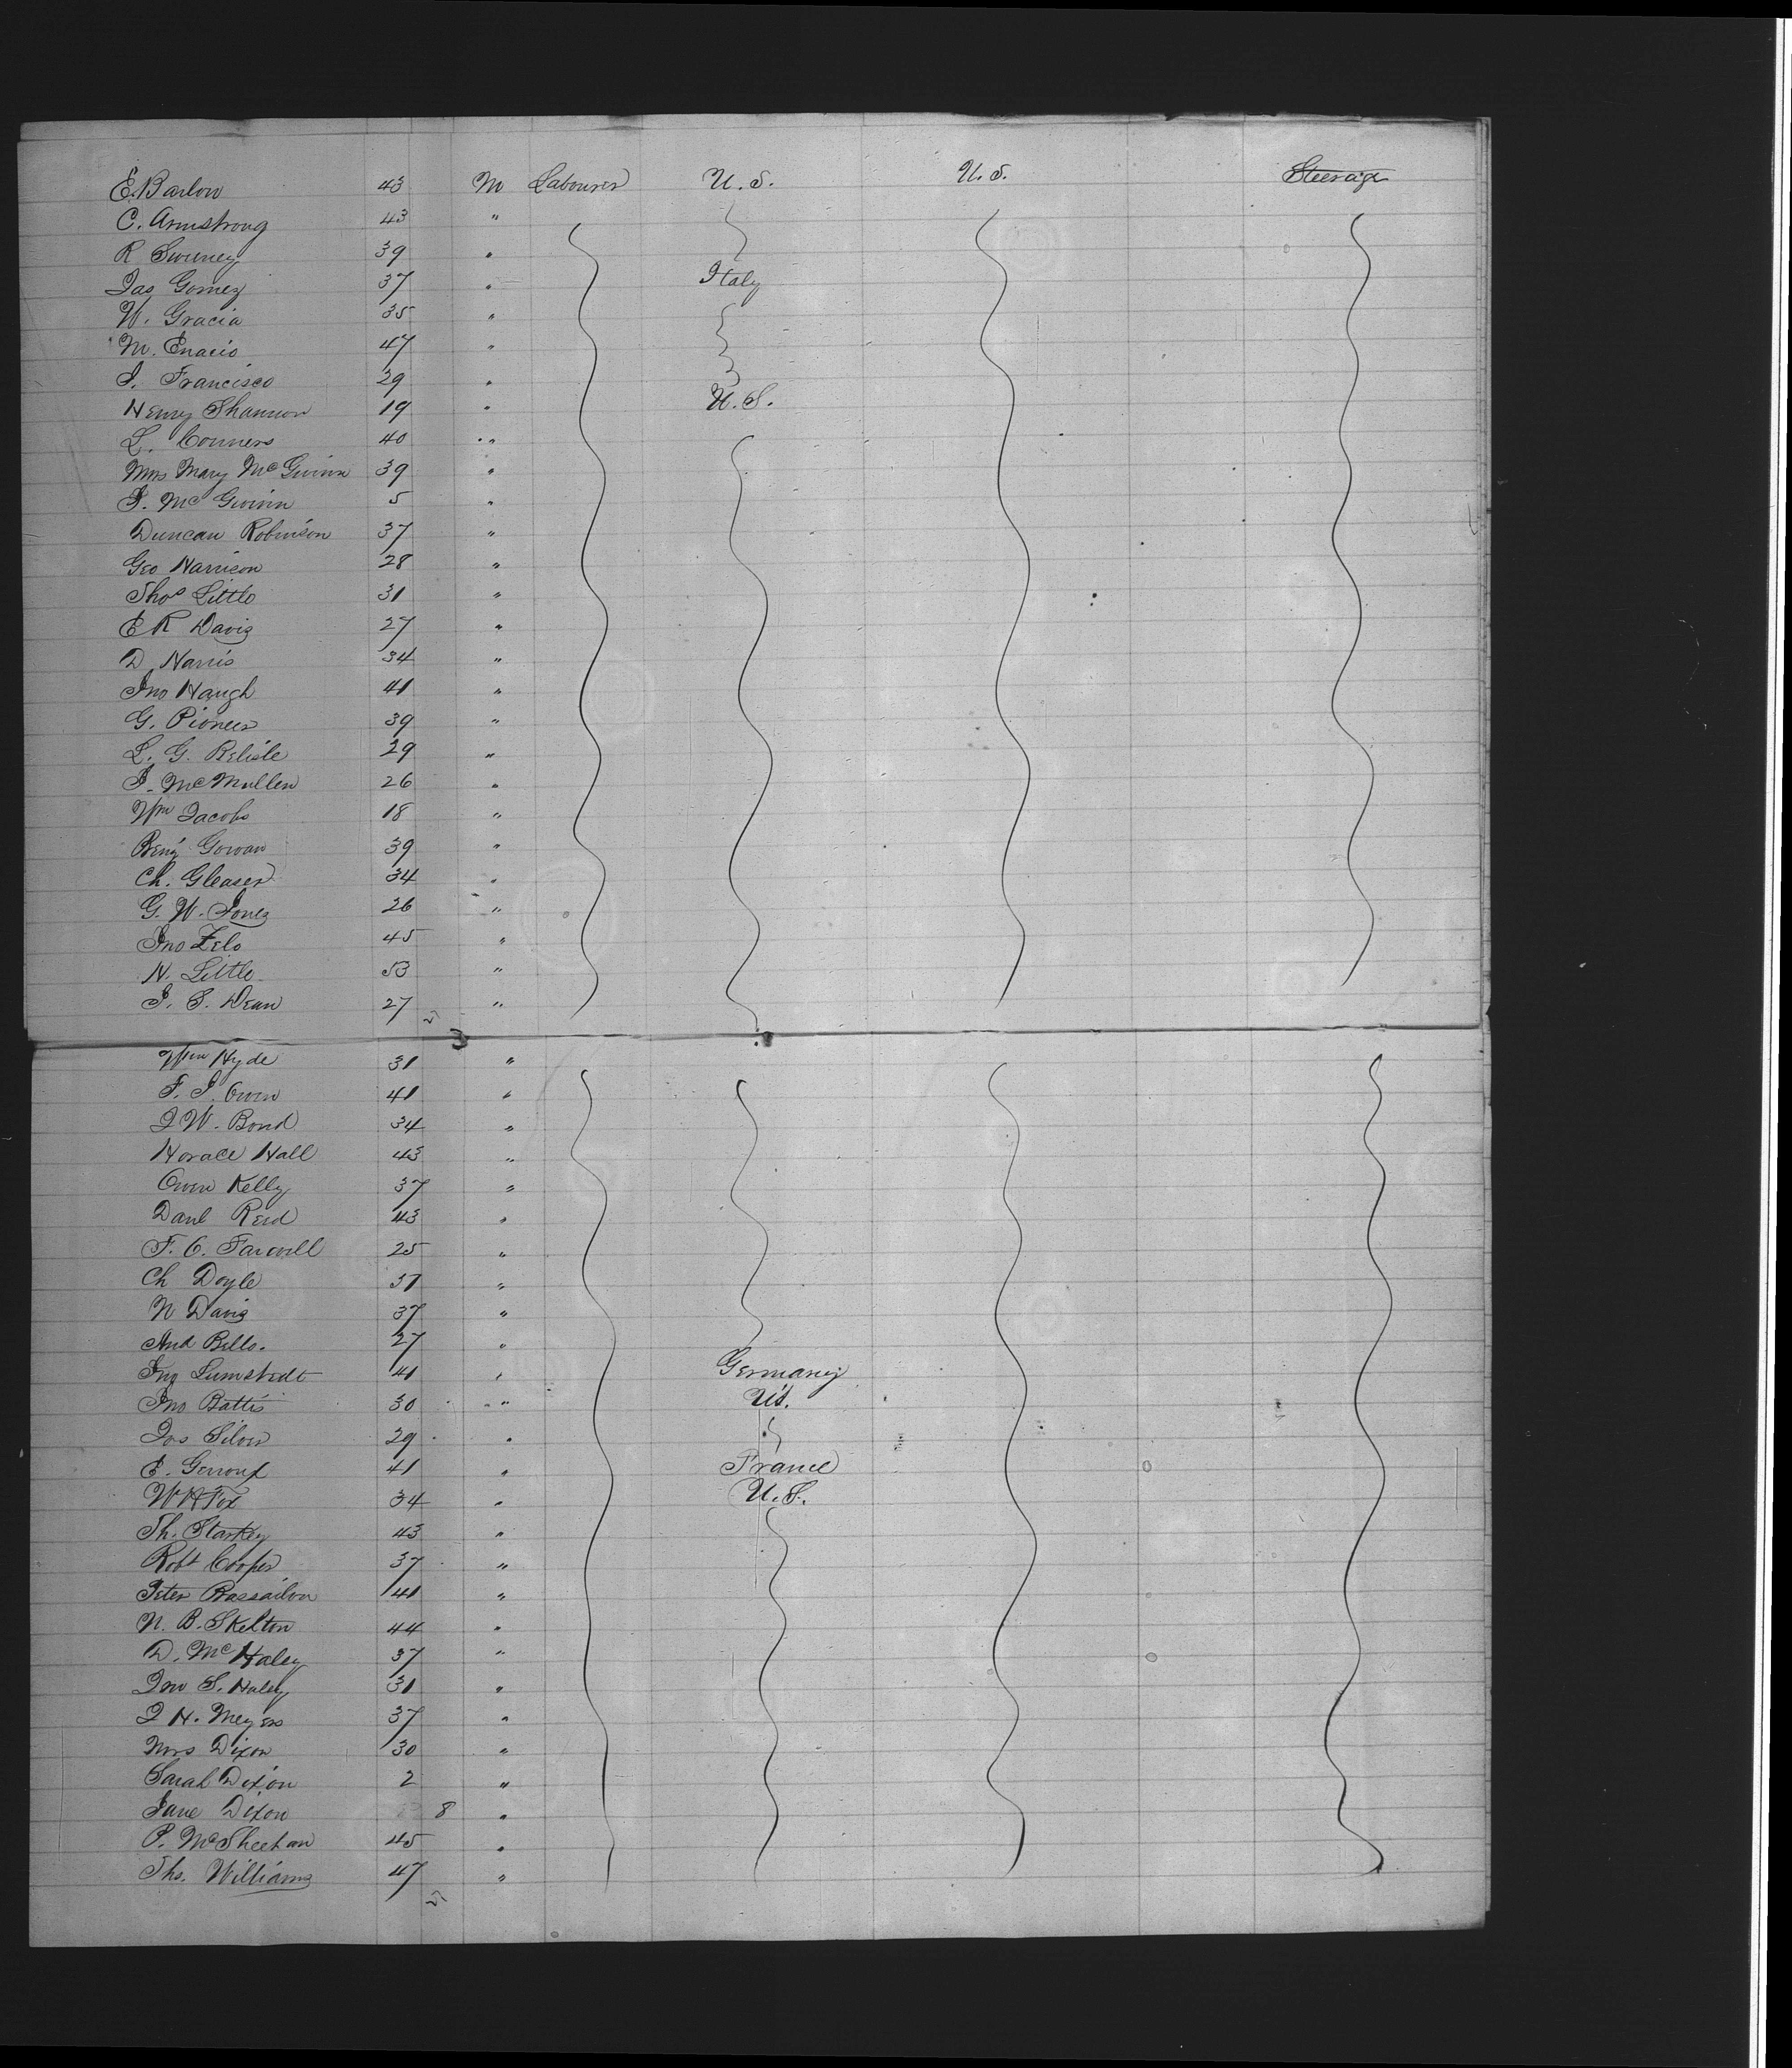 E. Barlow 43 M Labourer U.S. U.S. Steerage
C. Armstrong 43 "
R Sweeney 39 "
Jas Gomez 37 " Italy
W. Gracia 35 "
M. Enacio 47 "
J. Francisco 29 "
Henry Shannon 19 " U.S.
L. Conners 40 "
Mrs Mary McGwinn 39 "
J. McGwinn 5 "
Duncan Robinson 37 "
Geo Harrison 28 "
Thos Little 31 "
E R Davis 27 "
D Harris 34 "
Jno Haugh 41 "
G. Pioneer 39 "
L. G. Belisle 29 "
J. McMullen 26 "
Wm Jacobs 18 "
Benj Gowan 39 "
Ch. Gleaser 34 "
G. W. Jones 26 "
Jno Zelo 45 "
N. Little 53 "
J. S. Dean 27 "
Wm Hyde 31 "
F. J. Owen 41 "
J W. Bond 34 "
Horace Hall 43 "
Owen Kelly 37 "
Danl Reid 43 "
F. C. Farwell 25 "
Ch Doyle 37 "
N Davis 37 "
And Bells. 27 "
Jno Lumstedt 41 " Germany
Jno Battis 30 " U.S.
Jos Silver 29 "
E. Gerrouf 41 " France
W H Fox 34 " U.S.
Th. Starkey 43 "
Robt Cooper 37 "
Peter Bassailon 41 "
N. B. Skelton 44 "
D. McHaley 37 "
Jno S. Haley 31 "
J H. Meyers 37 "
Mrs Dixon 30 "
Sarah Dixon 2 "
Jane Dixon 8 "
P. McSheehan 45 "
Ths. Williams 47 "